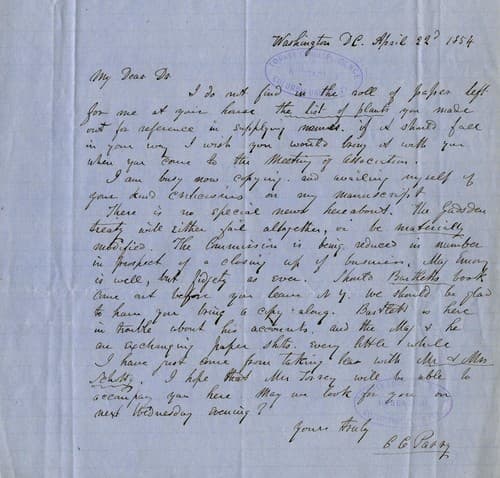 Washington D.C. April 22d 1854
My Dear Dr.
I do not find in the roll of paper left
for me at your house the list of plants you made
out for reference in supplying names. if it should fall
in your way I wish you would bring it with you
when you come to the Meeting of Association.
I am busy now copying and availing myself of
your kind criticisms on my manuscript
There is no special news hereabout. the Gadsden
treaty will either fail altogether, or be materially
modified. The Commission is being reduced in number
in prospect of a closing up of business. My
is well, but fidgety as ever. Should Bartletts book
come out before you leave N.Y. we should be glad
to have you bring a copy along. Bartlett is here
in trouble about his accounts. and the Maj & he
are exchanging paper shots every little while
I have just come from taking tea with Mr & Mrs
Schott. I hope that Mrs Torrey will be able to
accompay you here May we look for you on
next Wednesday evening?
Yours truly
C C Parry